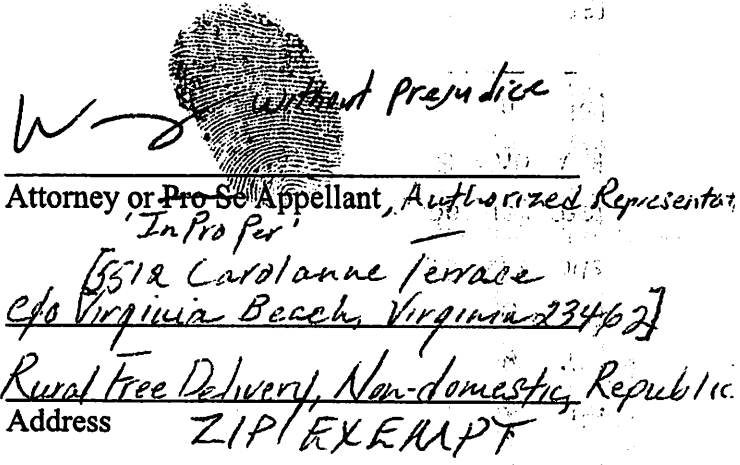 without prejudice
Attorney or Pro Se Appellant, Authorized Representat
'In Pro Per'
[5512 Carolanne Terrace
c/o Virginia Beach, Virginia 23462]
Rural Free Delivery, Non-domestic, Republic
Address ZIP EXEMPT